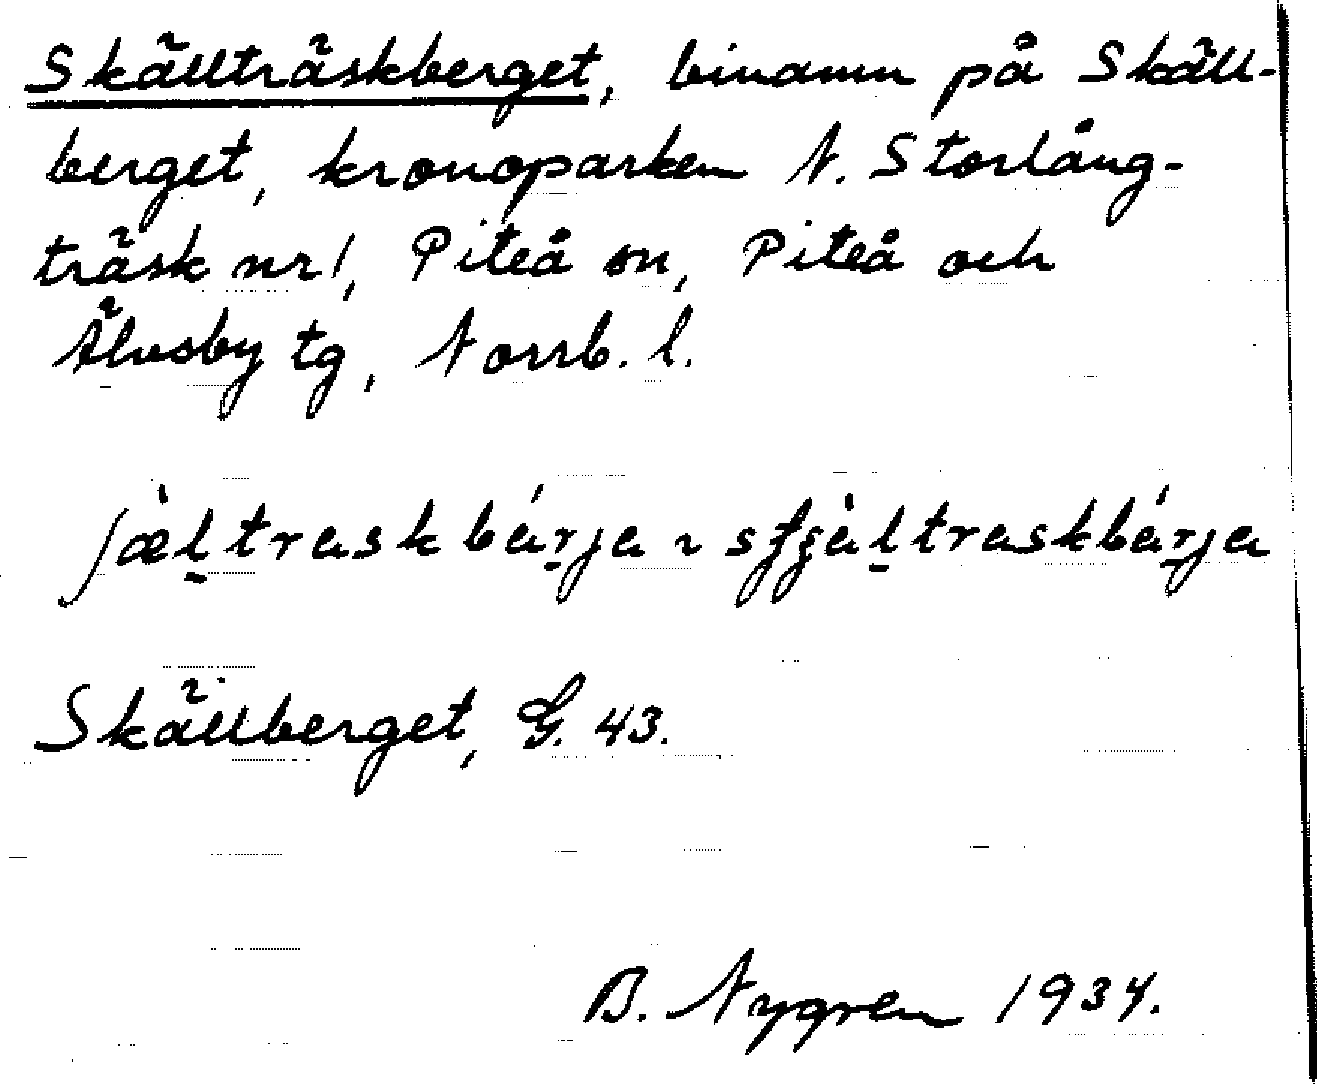 Skällträskberget, binamn på Skäll-
berget, kronoparken N. Storlång-
träsk nr 1, Piteå sn, Piteå och
Älvsby tg, Norrb. l.
ʃæ̀l̠traskbár̠ja ~ sʈʂàl̠traskbár̠ja
Skällberget, G. 43.
B. Nygren 1934.